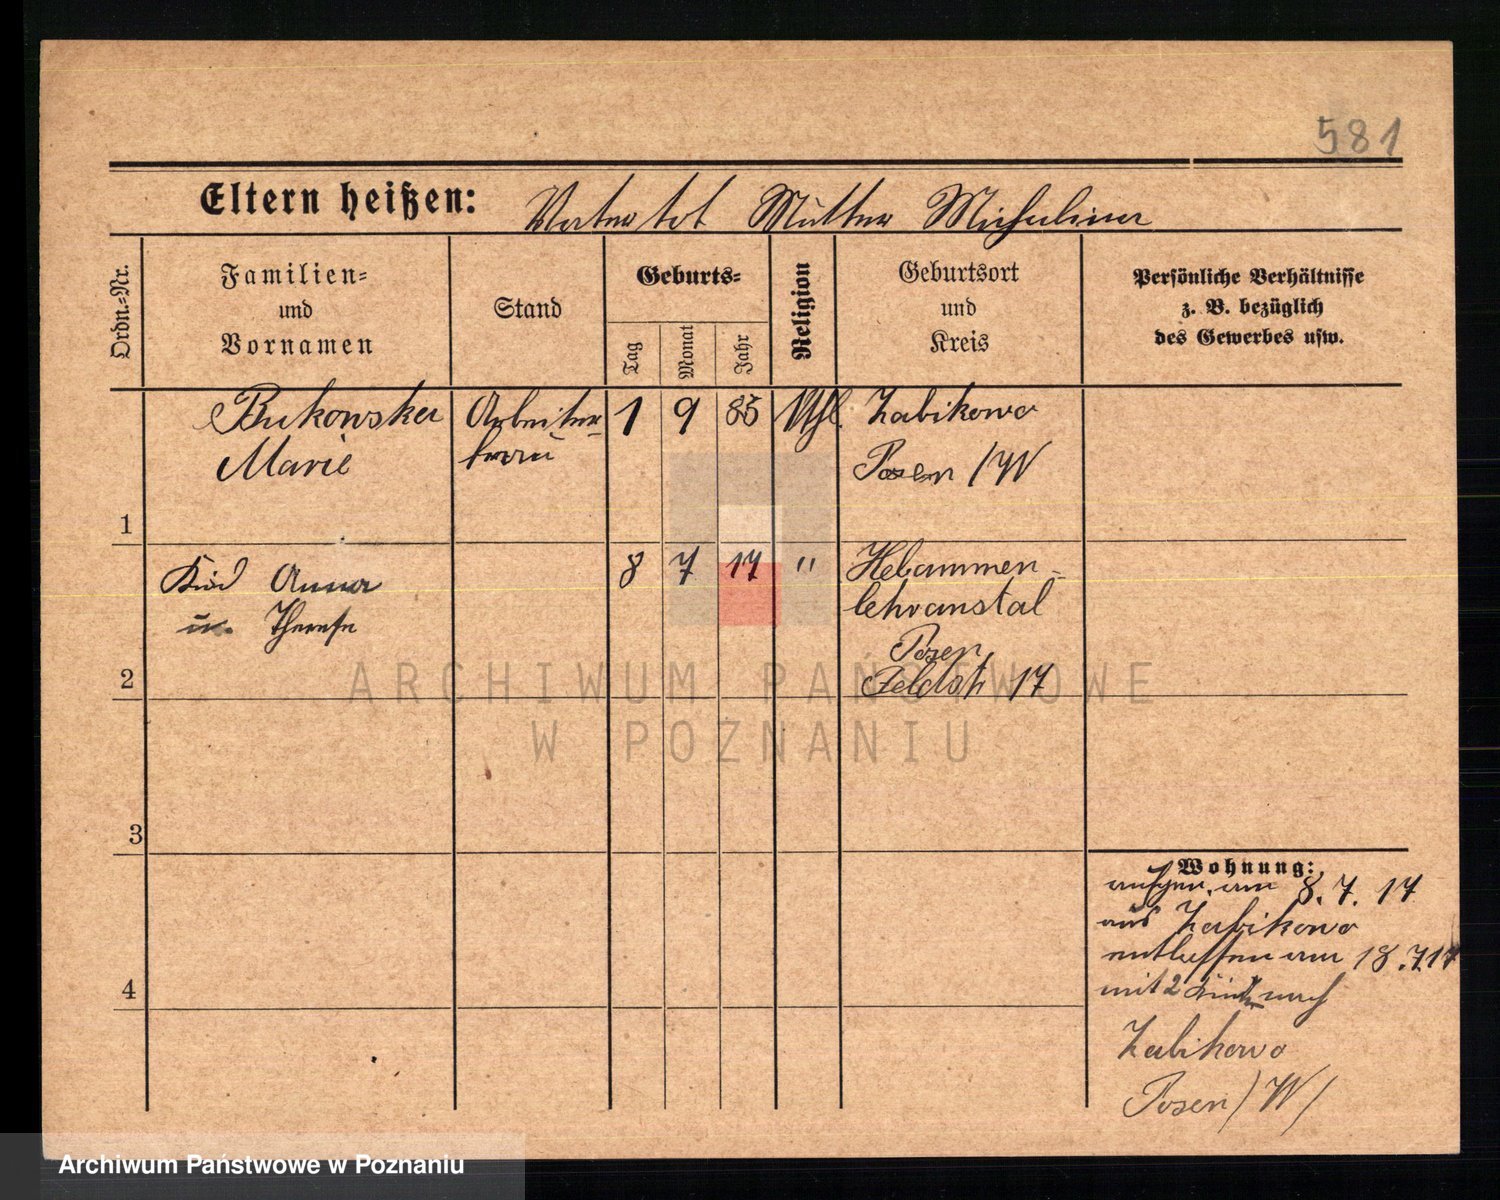 581
Eltern heißen: Vater tot Mutter Michalina
Ordn.=Nr.
Familien=
und
Vornamen
Stand
Geburts=
Tag
Monat
Jahr
Religion
Geburtsort
und
Kreis
Persönliche Verhältnisse
z. B. bezüglich
des Gewerbes usw.
1
Bukowska
Marie
Arbeiter
frau
1 9 85
Kthl.
Zabikowo
Posen / W
2
Kind Anna
u. Therese
8 7 17 "
Hebammen=
lehranstal
Posen
Feldstr 17
3
4
Wohnung:
aufgen. am 8. 7. 17
aus Zabikowo
entlassen am 18.7.17
mit 2 Kind nach
Zabikowo
Posen / W /
ARCHIWUM PAŃSTWOWE
W POZNANIU
Archiwum Państwowe w Poznaniu